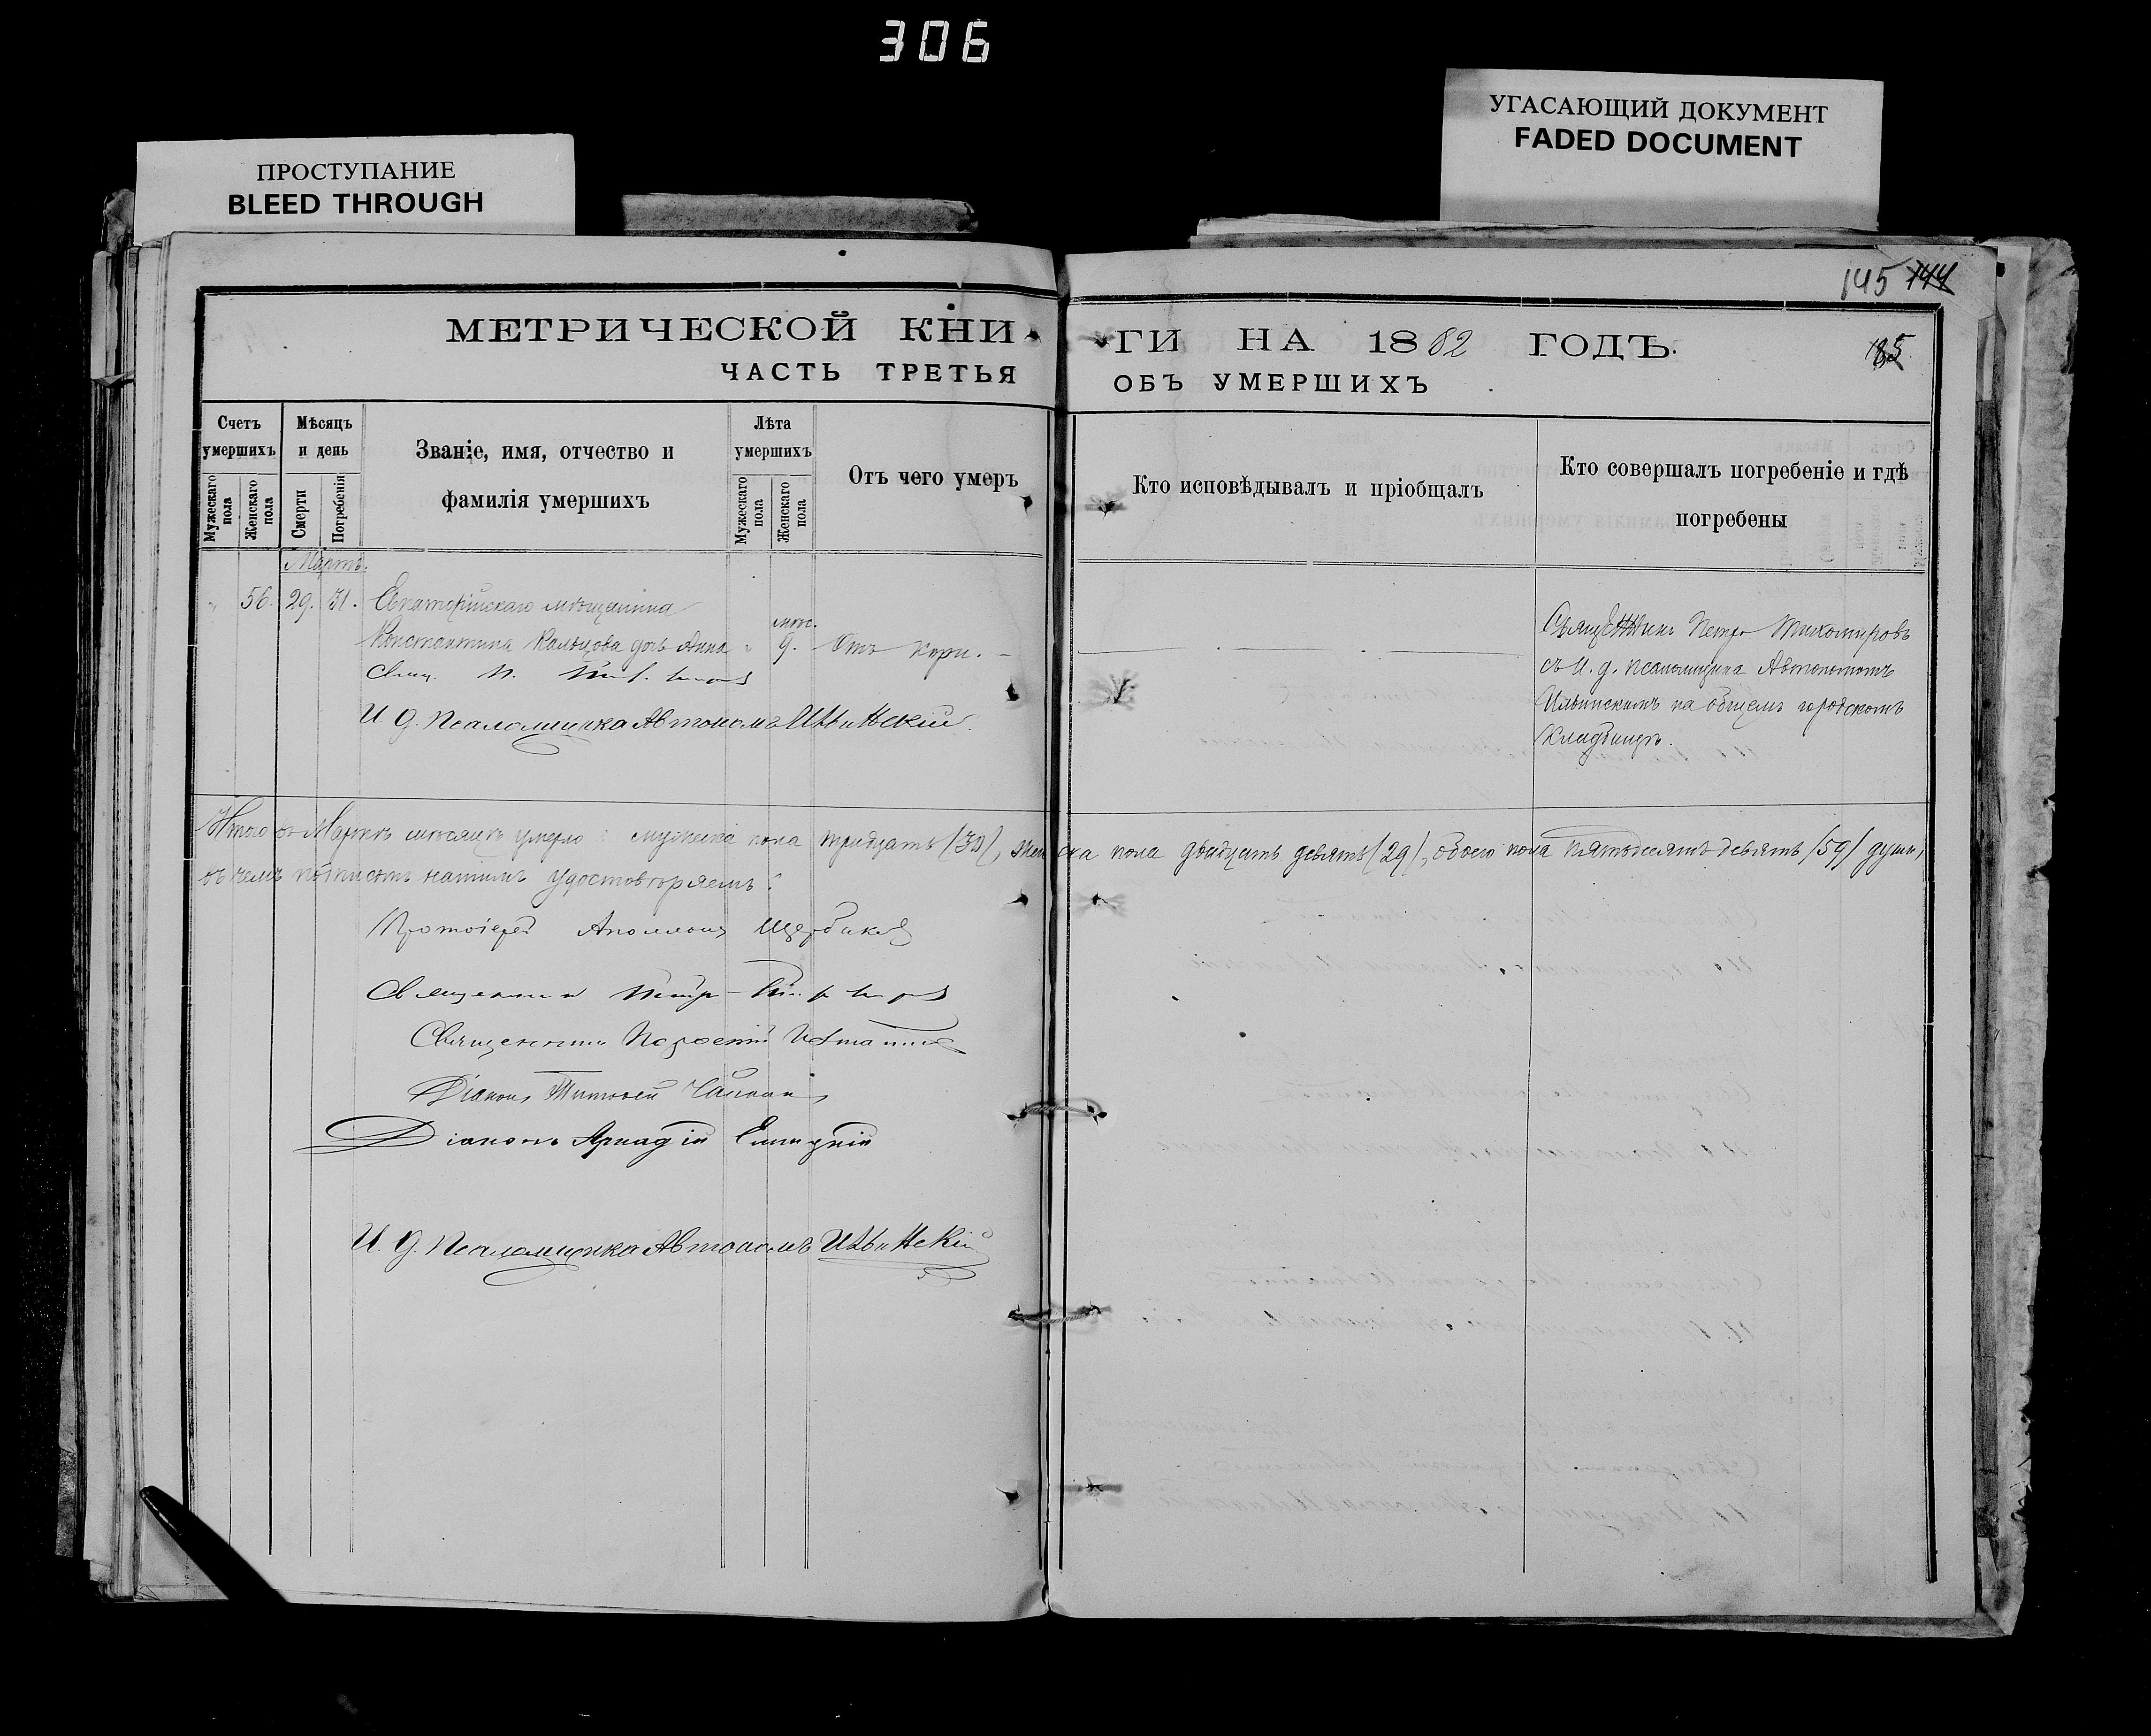 306
ПРОСТУПАНИЕ
BLEED THROUGH
УГАСАЮЩИЙ ДОКУМЕНТ
FADED DOCUMENT
145 144
МЕТРИЧЕСКОЙ КНИ
ГИ НА 1882 ГОДЪ.
185
ЧАСТЬ ТРЕТЬЯ
ОБЪ УМЕРШИХЪ
Счетъ умершихъ
Мужескаго пола
Женскаго пола
Мѣсяцъ и день
Смерти
Погребенія
Званіе, имя, отчество и
фамилія умершихъ
Лѣта умершихъ
Мужескаго пола
Женскаго пола
Отъ чего умеръ
Кто исповѣдывалъ и пріобщалъ
Кто совершалъ погребеніе и гдѣ
погребены
Мартъ.
" 56. 29. 31. Евпаторійскаго мѣщанина
Константина Кальцова дочь Анна " 9. мѣс. Отъ кори.
Свящ. П. Тихомировъ
И. д. Псаломщика Автономъ Ильинскій.
Священникъ Петръ Тихомировъ
съ И. д. псаломщика Автономомъ
Ильинскимъ на общемъ городскомъ
кладбищѣ.
Итого въ Мартѣ мѣсяцѣ умерло: мужеска пола тридцать (30), женска пола двадцать девять (29), обоего пола пятьдесятъ девять (59) душъ,
въ чемъ подписомъ нашимъ удостовѣряемъ:
Протоіерей Аполлонъ Щербаковъ
Священникъ Петръ Тихомировъ
Священникъ
Діаконъ Тимофей
Діаконъ Аркадій
И. д. Псаломщика Автономъ Ильинскій